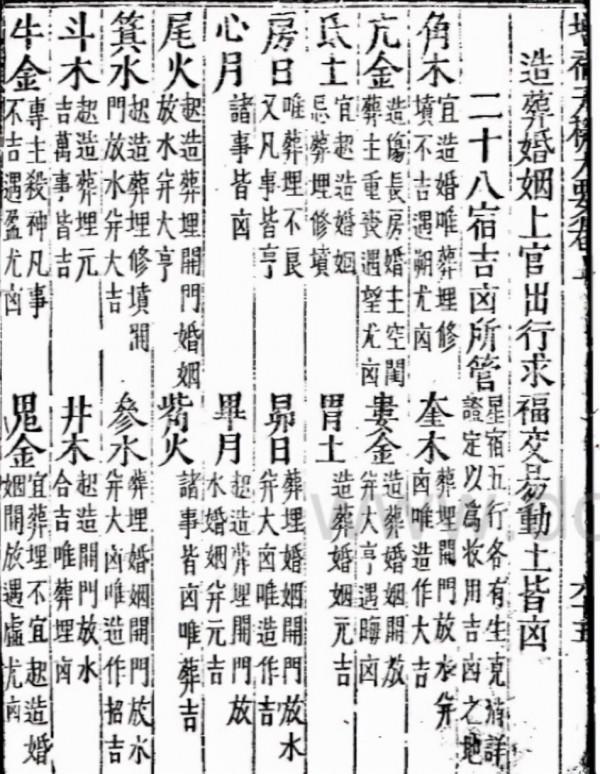 六十五
造葬婚姻上官出行求福交易動土皆凶
二十八宿吉凶所管
星宿五行各有生克 詳
證定以爲妝用吉凶之地
角木
宜造婚唯葬埋修
墳不吉遇朔尤凶
奎木
葬埋開門放水并
凶唯造作大吉
亢金
造傷長房婚主空閨
葬主重喪遇望尤凶
婁金
造葬婚姻開放
并大亨遇晦凶
氐土
宜起造婚姻
忌葬埋修墳
胃土
造葬婚姻元吉
房日
唯葬埋不良
又凡事皆亨
昴日
葬埋婚姻開門放水
并大凶唯造作吉
心月
諸事皆凶
畢月
起造葬埋開門放
水婚姻并元吉
尾火
起造葬埋開門婚姻
放水并大亨
觜火
諸事皆凶唯葬吉
箕水
起造葬埋修墳開
門放水并大吉
參水
葬埋婚姻開門放水
并大凶唯造作招吉
斗木
起造葬埋元
吉萬事皆吉
井木
起造開門放水
合吉唯葬埋凶
牛金
專主殺神凡事
不吉遇盈尤凶
鬼金
宜葬埋不宜起造婚
姻開放遇虛尤凶
www.do